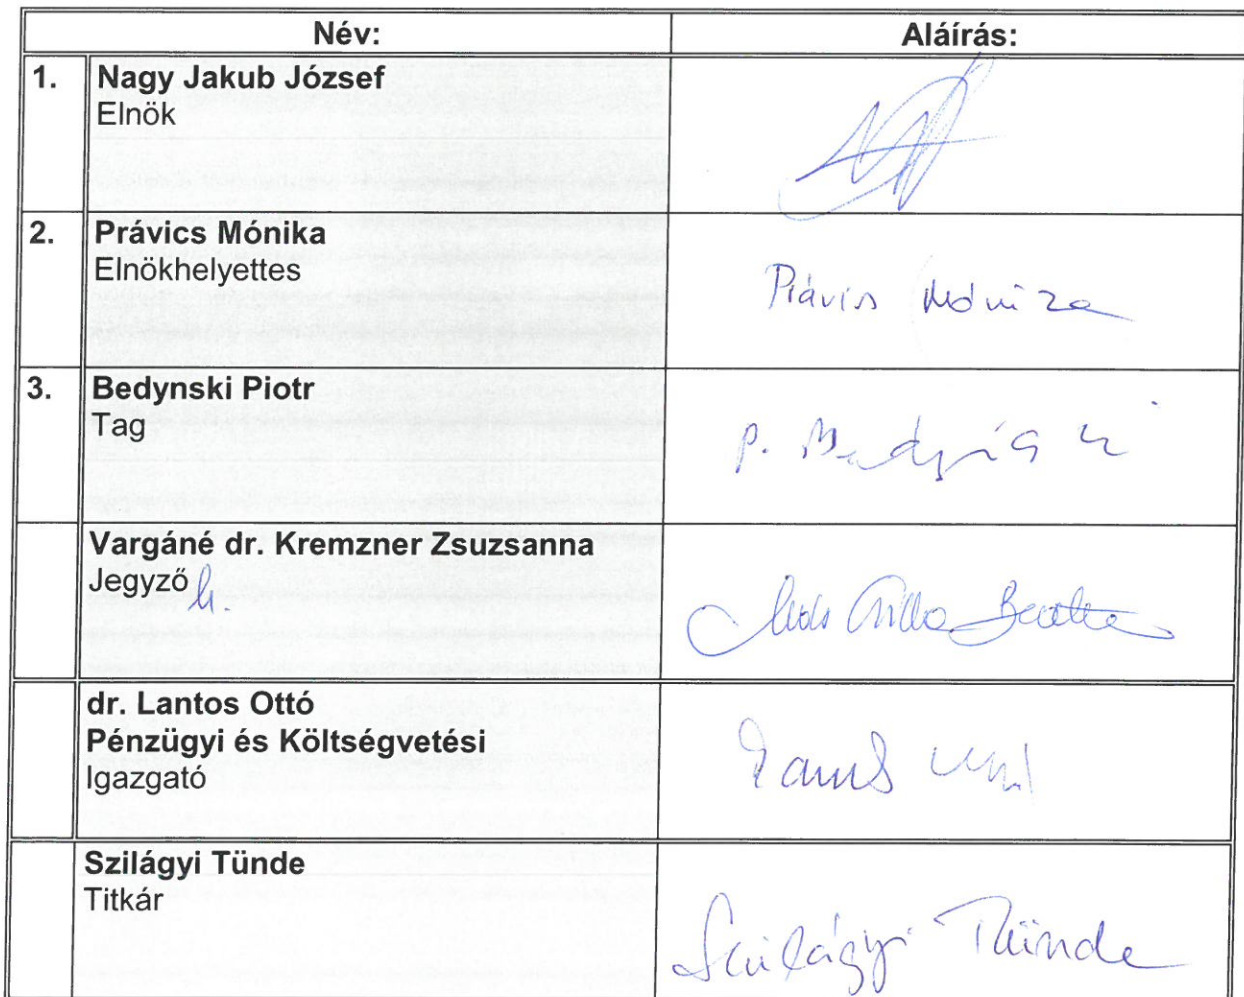 Név: Aláírás:
1. Nagy Jakub József
Elnök
2. Právics Mónika
Elnökhelyettes
Právics Mónika
3. Bedynski Piotr
Tag
P. Bedynski
Vargáné dr. Kremzner Zsuzsanna
Jegyző h.
dr. Lantos Ottó
Pénzügyi és Költségvetési
Igazgató
Szilágyi Tünde
Titkár
Szilágyi Tünde